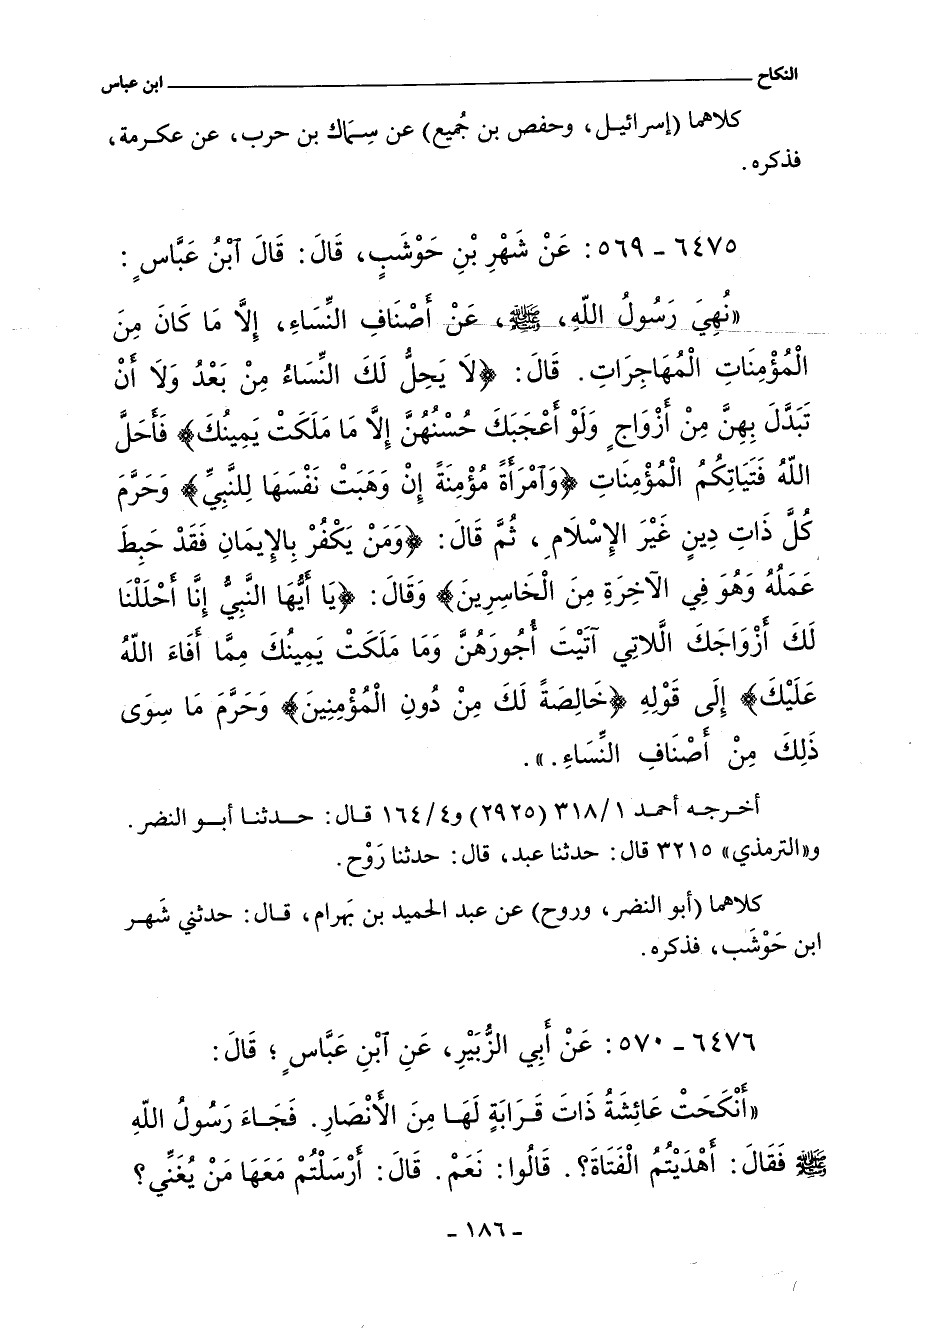 النكاح ـــــــــــ ابن عباس
كلاهما (إسرائيل، وحفص بن جُميع) عن سِمَاك بن حرب، عن عكرمة،
فذكره.
٦٤٧٥ - ٥٦٩: عَنْ شَهْرِ بْنِ حَوْشَبٍ، قَالَ: قَالَ ٱبْنُ عَبَّاسٍ:
«نُهِيَ رَسُولُ اللّهِ، ﷺ، عَنْ أَصْنَافِ النِّسَاءِ، إِلَّا مَا كَانَ مِنَ
الْمُؤْمِنَاتِ الْمُهَاجِرَاتِ. قَالَ: ﴿لَا يَحِلُّ لَكَ النِّسَاءُ مِنْ بَعْدُ وَلَا أَنْ
تَبَدَّلَ بِهِنَّ مِنْ أَزْوَاجٍ وَلَوْ أَعْجَبَكَ حُسْنُهُنَّ إِلَّا مَا مَلَكَتْ يَمِينُكَ﴾ فَأَحَلَّ
اللّهُ فَتَيَاتِكُمُ الْمُؤْمِنَاتِ ﴿وَٱمْرَأَةً مُؤْمِنَةً إِنْ وَهَبَتْ نَفْسَهَا لِلنَّبِيِّ﴾ وَحَرَّمَ
كُلَّ ذَاتِ دِينٍ غَيْرَ الإِسْلَامِ، ثُمَّ قَالَ: ﴿وَمَنْ يَكْفُرْ بِالإِيمَانِ فَقَدْ حَبِطَ
عَمَلُهُ وَهُوَ فِي الْآخِرَةِ مِنَ الْخَاسِرِينَ﴾ وَقَالَ: ﴿يَا أَيُّهَا النَّبِيُّ إِنَّا أَحْلَلْنَا
لَكَ أَزْوَاجَكَ اللَّاتِي آتَيْتَ أُجُورَهُنَّ وَمَا مَلَكَتْ يَمِينُكَ مِمَّا أَفَاءَ اللّهُ
عَلَيْكَ﴾ إِلَى قَوْلِهِ ﴿خَالِصَةً لَكَ مِنْ دُونِ الْمُؤْمِنِينَ﴾ وَحَرَّمَ مَا سِوَى
ذَلِكَ مِنْ أَصْنَافِ النِّسَاءِ.».
أخرجه أحمد ٣١٨/١ (٢٩٢٥) و١٦٤/٤ قال: حدثنا أبو النضر.
و«الترمذي» ٣٢١٥ قال: حدثنا عبد، قال: حدثنا رَوْح.
كلاهما (أبو النضر، وروح) عن عبد الحميد بن بَهرام، قال: حدثني شَهر
ابن حَوْشَب، فذكره.
٦٤٧٦ - ٥٧٠: عَنْ أَبِي الزُّبَيْرِ، عَنِ ٱبْنِ عَبَّاسٍ؛ قَالَ:
«أَنْكَحَتْ عَائِشَةُ ذَاتَ قَرَابَةٍ لَهَا مِنَ الْأَنْصَارِ. فَجَاءَ رَسُولُ اللّهِ
ﷺ فَقَالَ: أَهْدَيْتُمُ الْفَتَاةَ؟. قَالُوا: نَعَمْ. قَالَ: أَرْسَلْتُمْ مَعَهَا مَنْ يُغَنِّي؟
- ١٨٦ -